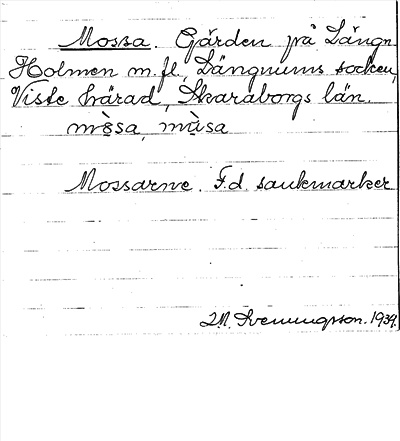 Mossa. Gärden på Längn
Holmen m.fl. Längnums socken,
Viste härad, Skaraborgs län.
mòsa, mùsa
Mossarne. F.d. sankmarker
Sveningsson. 1939.